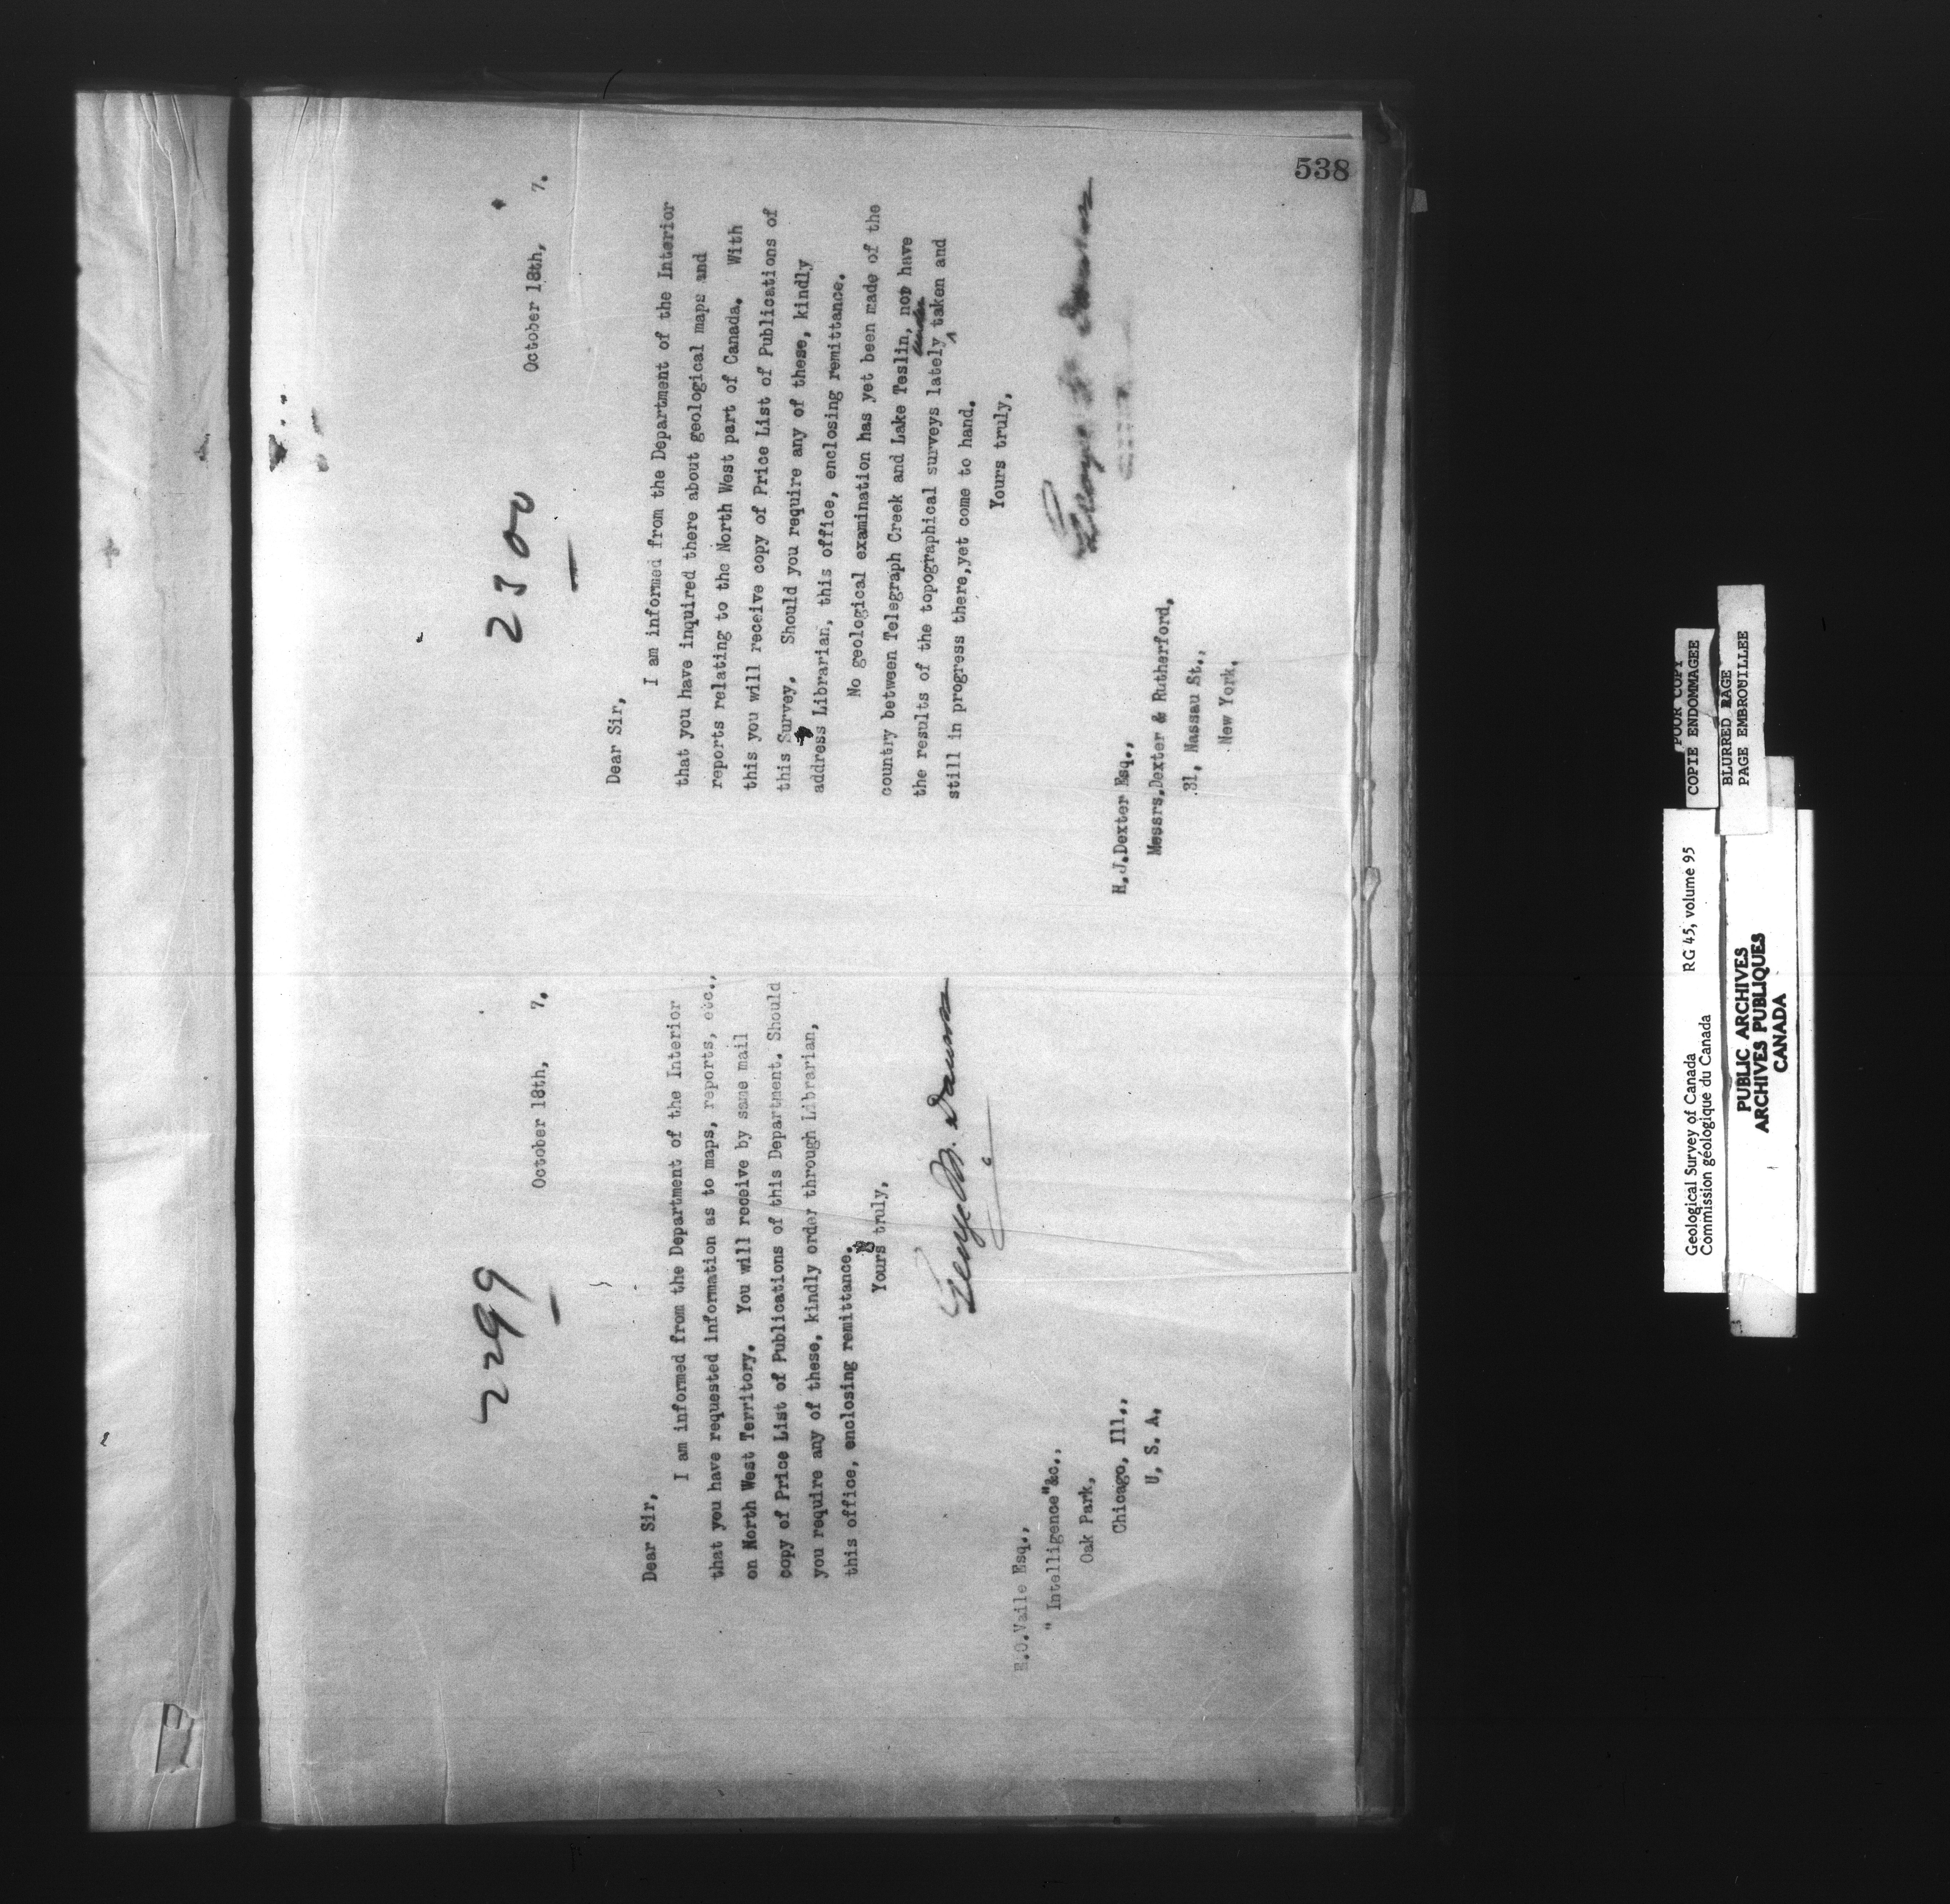 538
2299
October 18th, 7.
Dear Sir,
I am informed from the Department of the Interior
that you have requested information as to maps, reports, etc.,
on North West Territory. You will receive by same mail
copy of Price List of Publications of this Department. Should
you require any of these, kindly order through Librarian,
this office, enclosing remittance.
Yours truly,
George M. Dawson
E.O.Vaile Esq.,
" Intelligence"&c.,
Oak Park,
Chicago, Ill.,
U. S. A.
2300
October 18th, 7.
Dear Sir,
I am informed from the Department of the Interior
that you have inquired there about geological maps and
reports relating to the North West part of Canada. With
this you will receive copy of Price List of Publications of
this Survey. Should you require any of these, kindly
address Librarian, this office, enclosing remittance.
No geological examination has yet been made of the
country between Telegraph Creek and Lake Teslin, nor have
the results of the topographical surveys lately under taken and
still in progress there,yet come to hand.
Yours truly,
George M. Dawson
H.J.Dexter Esq.,
Messrs.Dexter & Rutherford,
31, Nassau St.,
New York.
Geological Survey of Canada RG 45, volume 95
Commission géologique du Canada
PUBLIC ARCHIVES
ARCHIVES PUBLIQUES
CANADA
POOR COPY
COPIE ENDOMMAGEE
BLURRED PAGE
PAGE EMBROUILLEE